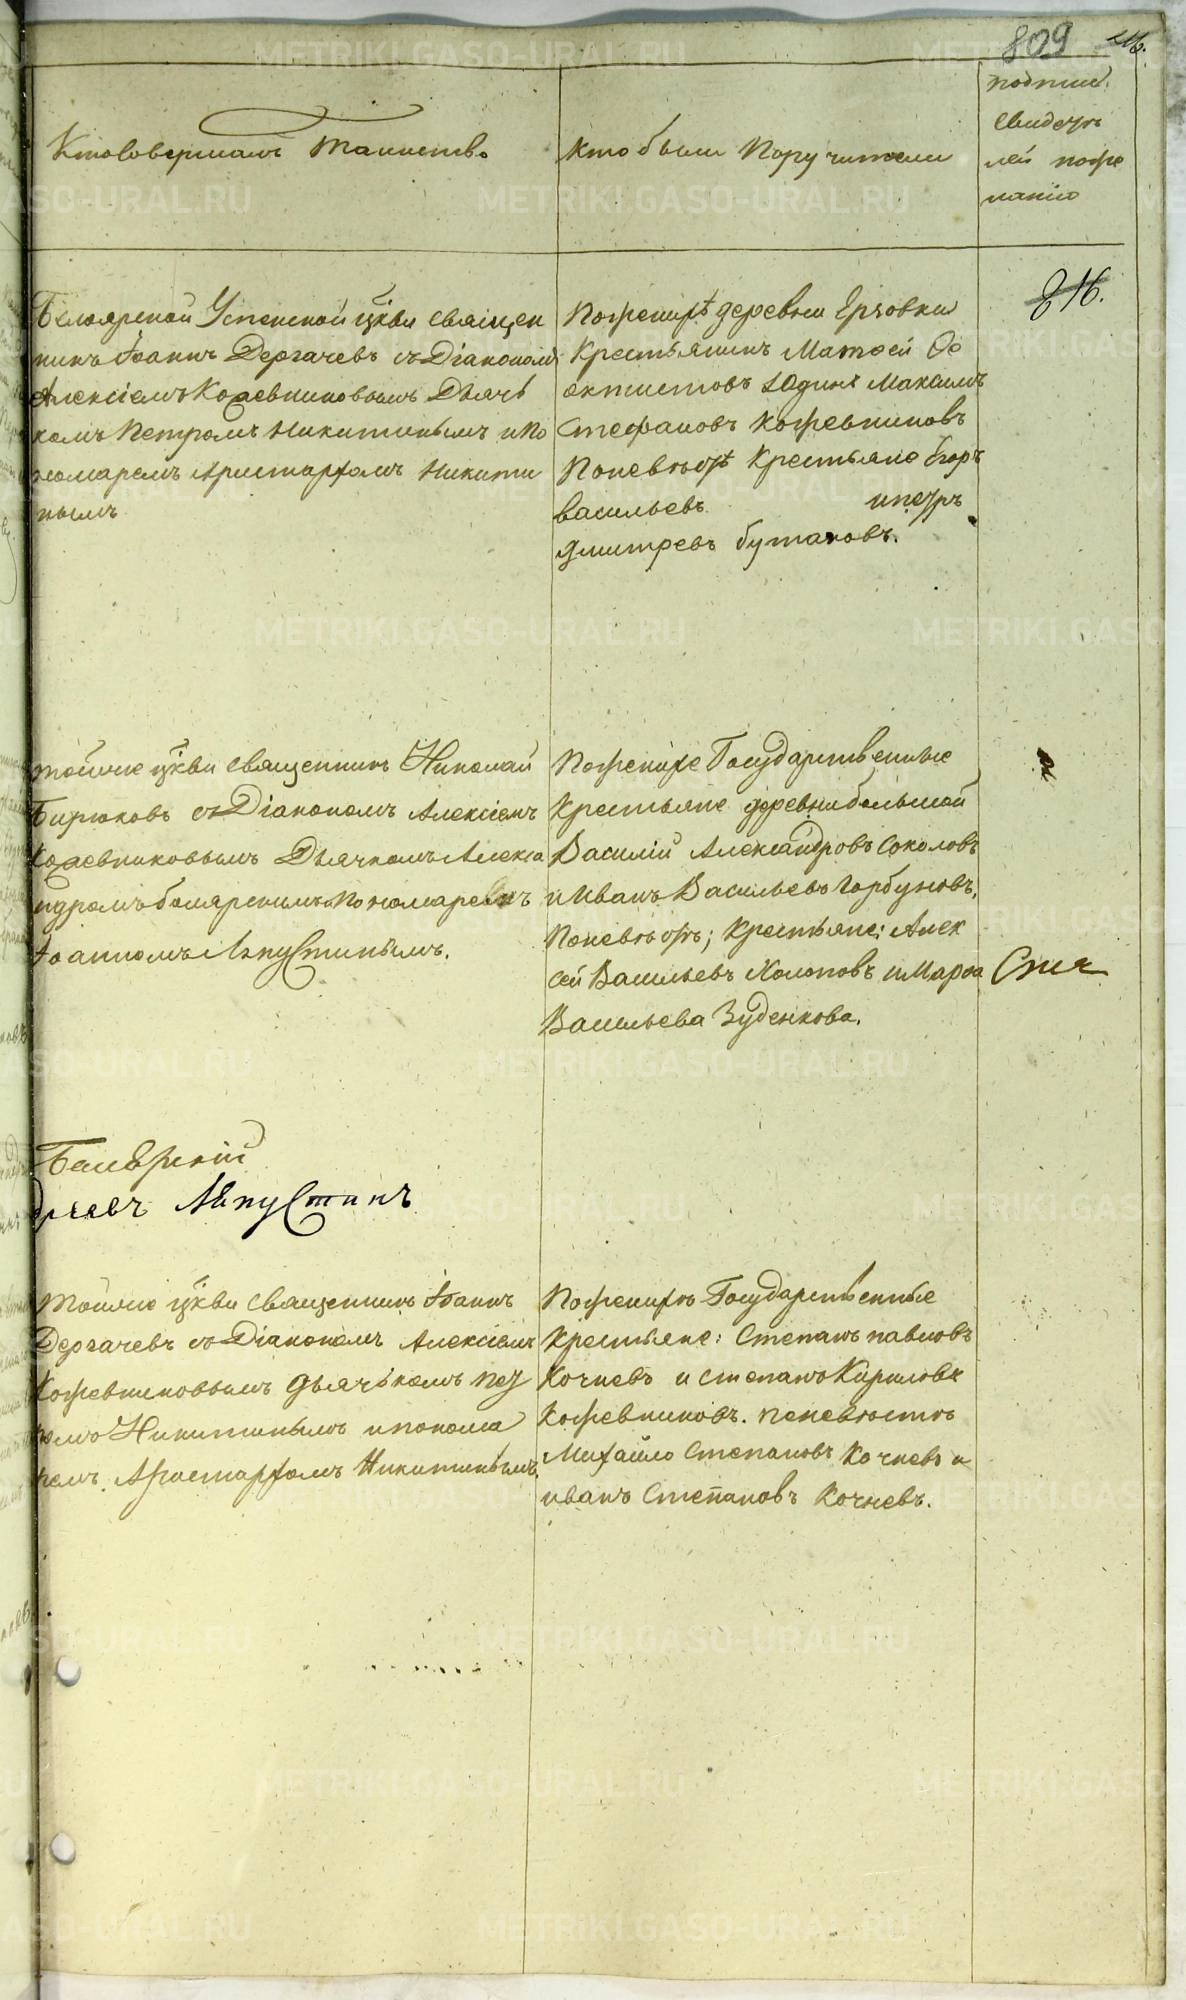 809
Кто Совершалъ Таинство
Кто были Поручители
подпись
Свидете
лей поже
ланію
Белоярской Успенской цѣкви священ
никъ Іоаннъ Дергачевъ съ Діакономъ
Алексіемъ Кожевниковымъ Дьячь
комъ Петромъ Никитинымъ и По
номаремъ Аристархомъ Никити
нымъ
По женихѣ деревни Ерзовки
Крестьянинъ Матвей Фе
октистовъ Юдинъ Максимъ
Стефановъ Кожевниковъ
По невѣстѣ Крестьяне Егоръ
васильевъ и петръ
Дмитревъ бутаковъ.
816.
Тойже цѣкви священникъ Николай
Бирюковъ съ Діакономъ Алексіемъ
Кожевниковымъ Дьячкомъ Алекса
ндромъ белярскимъ Пономаремъ
Іоанномъ Лѣпустинымъ.
По женихе Государственные
Крестьяне деревни большой
Василій Александровъ Соколовъ
и Иванъ Васильевъ Горбуновъ,
По невѣстѣ; Крестьяне: Алек
сей Васильевъ Холоповъ и Марфа
Васильева Зуденкова.
Белярскій
Лѣпустинъ
Тойже цѣкви священникъ Іоаннъ
Дергачевъ съ Діакономъ Алексіемъ
Кожевниковымъ дьячькомъ Пет
ромъ Никитинымъ и понома
ремъ Аристархомъ Никитинымъ.
По женихѣ Государственные
Крестьяне: Степанъ павловъ
Кочневъ и степанъ Кириловъ
Кожевниковъ. по невѣстѣ
Михайло Степановъ Кочневъ и
иванъ Степановъ Кочневъ.